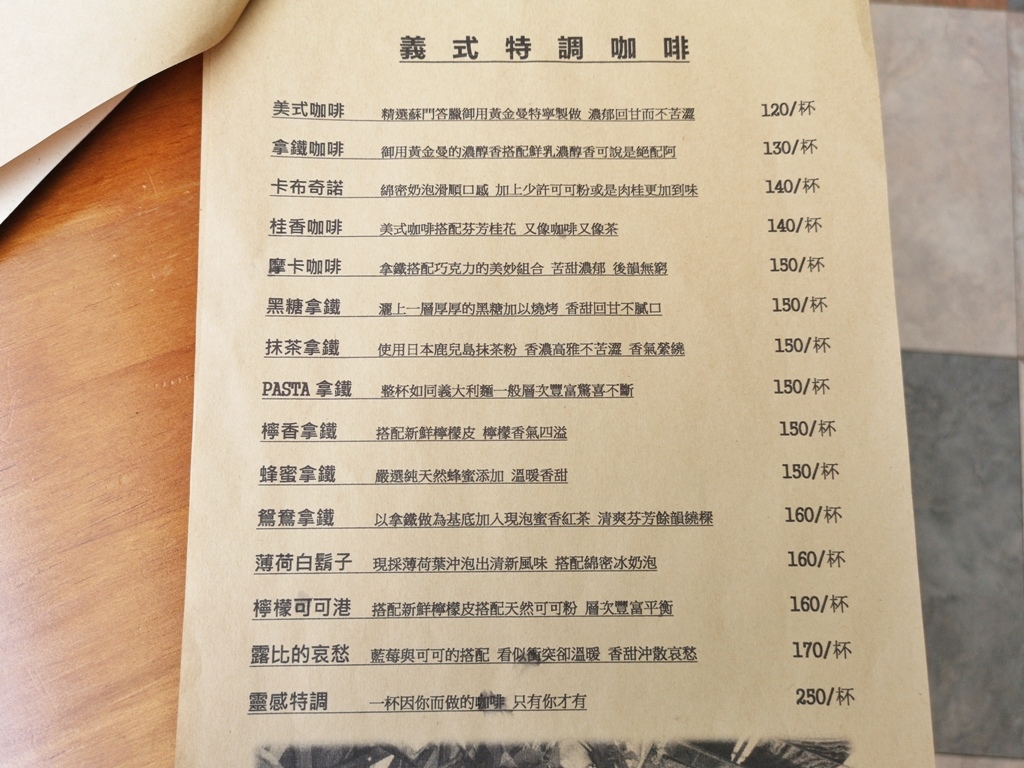 義式特調咖啡
美式咖啡 精選蘇門答臘御用黃金曼特寧製做 濃郁回甘而不苦澀 120/杯
拿鐵咖啡 御用黃金曼的濃醇香搭配鮮乳濃醇香可說是絕配阿 130/杯
卡布奇諾 綿密奶泡滑順口感 加上少許可可粉或是肉桂更加到味 140/杯
桂香咖啡 美式咖啡搭配芬芳桂花 又像咖啡又像茶 140/杯
摩卡咖啡 拿鐵搭配巧克力的美妙組合 苦甜濃郁 後韻無窮 150/杯
黑糖拿鐵 灑上一層厚厚的黑糖加以燒烤 香甜回甘不膩口 150/杯
抹茶拿鐵 使用日本鹿兒島抹茶粉 香濃高雅不苦澀 香氣縈繞 150/杯
PASTA 拿鐵 整杯如同義大利麵一般層次豐富驚喜不斷 150/杯
檸香拿鐵 搭配新鮮檸檬皮 檸檬香氣四溢 150/杯
蜂蜜拿鐵 嚴選純天然蜂蜜添加 溫暖香甜 150/杯
鴛鴦拿鐵 以拿鐵做為基底加入現泡蜜香紅茶 清爽芬芳餘韻繞樑 160/杯
薄荷白鬍子 現採薄荷葉沖泡出清新風味 搭配綿密冰奶泡 160/杯
檸檬可可港 搭配新鮮檸檬皮搭配天然可可粉 層次豐富平衡 160/杯
露比的哀愁 藍莓與可可的搭配 看似衝突卻溫暖 香甜沖散哀愁 170/杯
靈感特調 一杯因你而做的咖啡 只有你才有 250/杯